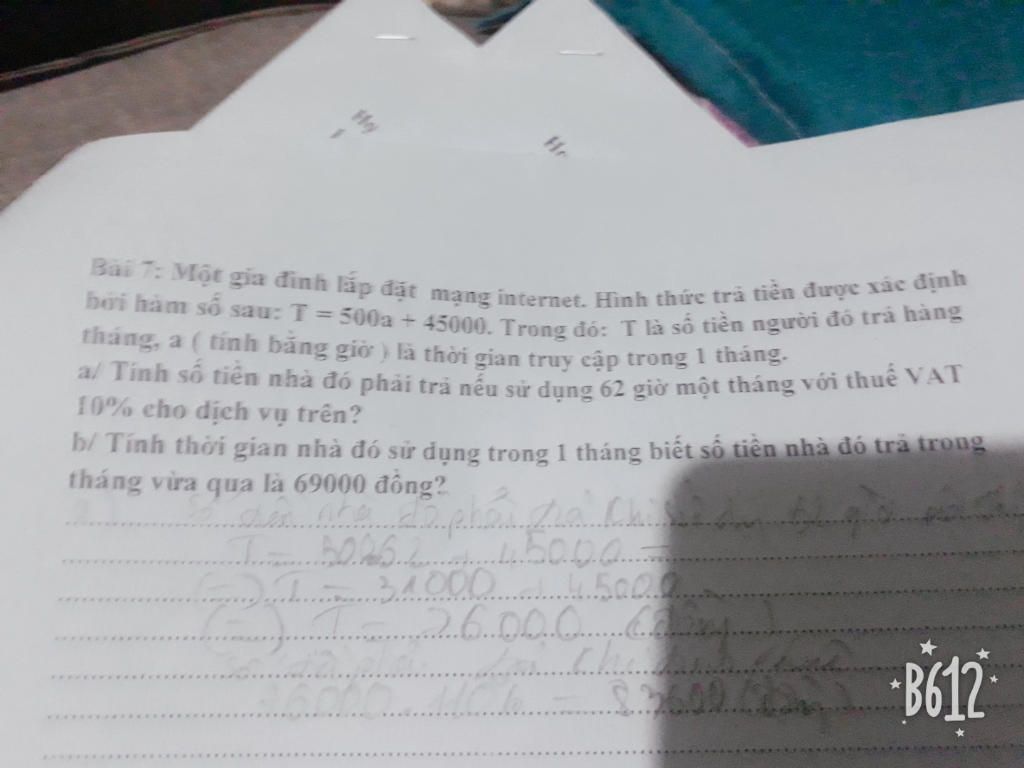 Bài 7: Một gia đình lắp đặt mạng internet. Hình thức trả tiền được xác định
bởi hàm số sau: T = 500a + 45000. Trong đó: T là số tiền người đó trả hàng
tháng, a ( tính bằng giờ ) là thời gian truy cập trong 1 tháng.
a/ Tính số tiền nhà đó phải trả nếu sử dụng 62 giờ một tháng với thuế VAT
10% cho dịch vụ trên?
b/ Tính thời gian nhà đó sử dụng trong 1 tháng biết số tiền nhà đó trả trong
tháng vừa qua là 69000 đồng?
nhà đó phải trả
T = + 45000
(=) T = 31000 + 45000
(=) T = 76000 (đồng)
phải trả
76000 . 110% = 83600 (đồng)
B612